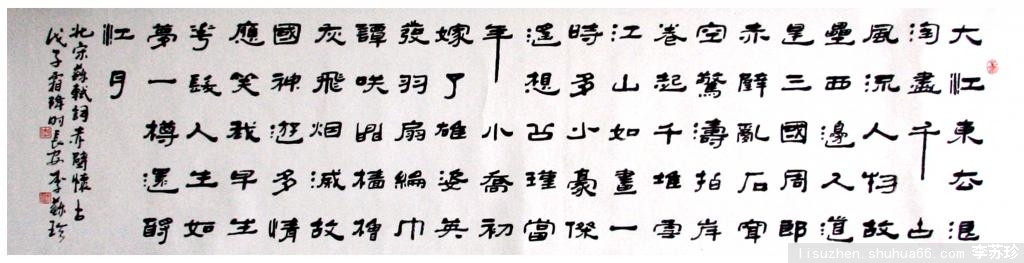 大江東去浪
淘盡千古
風流人物故
壘西邊人道
是三國周郎
赤壁亂石穿
空驚濤拍岸
卷起千堆雪
江山如畫一
時多少豪傑
遙想公瑾當
年小喬初
嫁了雄姿英
發羽扇綸巾
譚咲間檣櫓
灰飛烟滅故
國神遊多情
應笑我早生
華髮人生如
夢一樽還酹
江月
北宋蘇軾詞赤壁懷古
戊子霜降時長安李蘇珍
lisuzhen.shuhua66.com 李苏珍